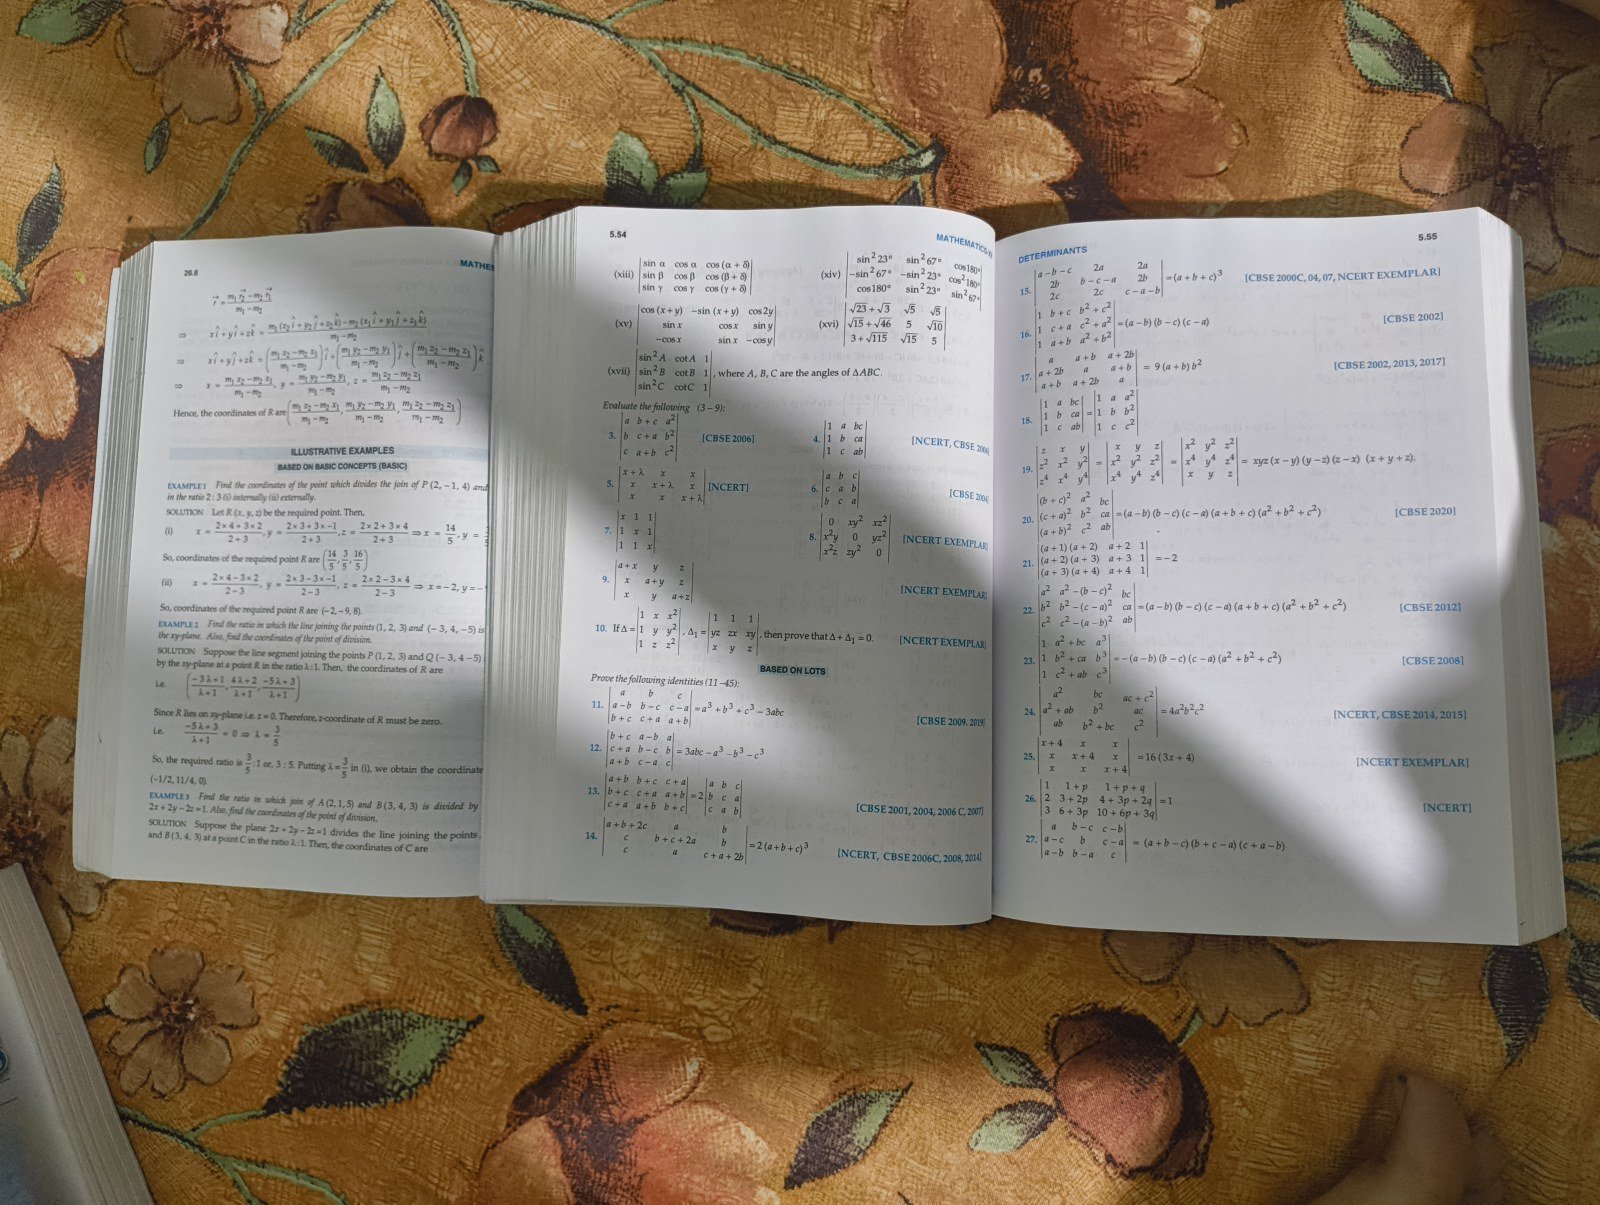 26.6
MATHEM
r⃗ = (m₁ r₂⃗ − m₂ r₁⃗)/(m₁ − m₂)
⇒ x î + y ĵ + z k̂ = (m₁ (x₂ î + y₂ ĵ + z₂ k̂) − m₂ (x₁ î + y₁ ĵ + z₁ k̂))/(m₁ − m₂)
⇒ x î + y ĵ + z k̂ = ((m₁ x₂ − m₂ x₁)/(m₁ − m₂)) î + ((m₁ y₂ − m₂ y₁)/(m₁ − m₂)) ĵ + ((m₁ z₂ − m₂ z₁)/(m₁ − m₂)) k̂
⇒ x = (m₁ x₂ − m₂ x₁)/(m₁ − m₂), y = (m₁ y₂ − m₂ y₁)/(m₁ − m₂), z = (m₁ z₂ − m₂ z₁)/(m₁ − m₂)
Hence, the coordinates of R are ((m₁ x₂ − m₂ x₁)/(m₁ − m₂), (m₁ y₂ − m₂ y₁)/(m₁ − m₂), (m₁ z₂ − m₂ z₁)/(m₁ − m₂))
ILLUSTRATIVE EXAMPLES
BASED ON BASIC CONCEPTS (BASIC)
EXAMPLE 1 Find the coordinates of the point which divides the join of P (2, −1, 4) and
in the ratio 2 : 3 (i) internally (ii) externally.
SOLUTION Let R (x, y, z) be the required point. Then,
(i) x = (2×4+3×2)/(2+3), y = (2×3+3×−1)/(2+3), z = (2×2+3×4)/(2+3) ⇒ x = 14/5, y = 3
So, coordinates of the required point R are (14/5, 3/5, 16/5)
(ii) x = (2×4−3×2)/(2−3), y = (2×3−3×−1)/(2−3), z = (2×2−3×4)/(2−3) ⇒ x = −2, y = −
So, coordinates of the required point R are (−2, −9, 8).
EXAMPLE 2 Find the ratio in which the line joining the points (1, 2, 3) and (−3, 4, −5) is
the xy-plane. Also, find the coordinates of the point of division.
SOLUTION Suppose the line segment joining the points P (1, 2, 3) and Q (−3, 4 −5)
by the xy-plane at a point R in the ratio λ : 1. Then, the coordinates of R are
i.e. ((−3λ+1)/(λ+1), (4λ+2)/(λ+1), (−5λ+3)/(λ+1))
Since R lies on xy-plane i.e. z = 0. Therefore, z-coordinate of R must be zero.
i.e. (−5λ+3)/(λ+1) = 0 ⇒ λ = 3/5
So, the required ratio is 3/5 : 1 or, 3 : 5. Putting λ = 3/5 in (i), we obtain the coordinate
(−1/2, 11/4, 0).
EXAMPLE 3 Find the ratio in which join of A (2, 1, 5) and B (3, 4, 3) is divided by
2x + 2y − 2z = 1. Also, find the coordinates of the point of division.
SOLUTION Suppose the plane 2x + 2y − 2z = 1 divides the line joining the points
and B (3, 4, 3) at a point C in the ratio λ : 1. Then, the coordinates of C are
5.54
MATHEMATICS
(xiii) |sin α cos α cos (α + δ)| (xiv) |sin² 23° sin² 67° cos 180°|
|sin β cos β cos (β + δ)| |−sin² 67° −sin² 23° cos² 180°|
|sin γ cos γ cos (γ + δ)| |cos 180° sin² 23° sin² 67°|
(xv) |cos (x + y) −sin (x + y) cos 2y| (xvi) |√23 + √3 √5 √5|
|sin x cos x sin y| |√15 + √46 5 √10|
|−cos x sin x −cos y| |3 + √115 √15 5|
(xvii) |sin² A cot A 1|
|sin² B cot B 1|, where A, B, C are the angles of ΔABC.
|sin² C cot C 1|
Evaluate the following (3 – 9):
3. |a b + c a²| [CBSE 2006] 4. |1 a bc| [NCERT, CBSE 2006]
|b c + a b²| |1 b ca|
|c a + b c²| |1 c ab|
5. |x + λ x x| [NCERT] 6. |a b c| [CBSE 2004]
|x x + λ x| |c a b|
|x x x + λ| |b c a|
7. |x 1 1| 8. |0 xy² xz²| [NCERT EXEMPLAR]
|1 x 1| |x²y 0 yz²|
|1 1 x| |x²z zy² 0|
9. |a + x y z| [NCERT EXEMPLAR]
|x a + y z|
|x y a + z|
10. If Δ = |1 x x²|, Δ₁ = |1 1 1|, then prove that Δ + Δ₁ = 0. [NCERT EXEMPLAR]
|1 y y²| |yz zx xy|
|1 z z²| |x y z|
BASED ON LOTS
Prove the following identities (11 –45):
11. |a b c|
|a − b b − c c − a| = a³ + b³ + c³ − 3abc [CBSE 2009, 2019]
|b + c c + a a + b|
12. |b + c a − b a|
|c + a b − c b| = 3abc − a³ − b³ − c³
|a + b c − a c|
13. |a + b b + c c + a| |a b c|
|b + c c + a a + b| = 2 |b c a| [CBSE 2001, 2004, 2006 C, 2007]
|c + a a + b b + c| |c a b|
14. |a + b + 2c a b|
|c b + c + 2a b| = 2 (a + b + c)³ [NCERT, CBSE 2006C, 2008, 2014]
|c a c + a + 2b|
DETERMINANTS
5.55
15. |a − b − c 2a 2a|
|2b b − c − a 2b| = (a + b + c)³ [CBSE 2000C, 04, 07, NCERT EXEMPLAR]
|2c 2c c − a − b|
16. |1 b + c b² + c²|
|1 c + a c² + a²| = (a − b) (b − c) (c − a) [CBSE 2002]
|1 a + b a² + b²|
17. |a a + b a + 2b|
|a + 2b a a + b| = 9 (a + b) b² [CBSE 2002, 2013, 2017]
|a + b a + 2b a|
18. |1 a bc| |1 a a²|
|1 b ca| = |1 b b²|
|1 c ab| |1 c c²|
19. |z x y| |x y z| |x² y² z²|
|z² x² y²| = |x² y² z²| = |x⁴ y⁴ z⁴| = xyz (x − y) (y − z) (z − x) (x + y + z).
|z⁴ x⁴ y⁴| |x⁴ y⁴ z⁴| |x y z|
20. |(b + c)² a² bc|
|(c + a)² b² ca| = (a − b) (b − c) (c − a) (a + b + c) (a² + b² + c²) [CBSE 2020]
|(a + b)² c² ab|
21. |(a + 1) (a + 2) a + 2 1|
|(a + 2) (a + 3) a + 3 1| = −2
|(a + 3) (a + 4) a + 4 1|
22. |a² a² − (b − c)² bc|
|b² b² − (c − a)² ca| = (a − b) (b − c) (c − a) (a + b + c) (a² + b² + c²) [CBSE 2012]
|c² c² − (a − b)² ab|
23. |1 a² + bc a³|
|1 b² + ca b³| = −(a − b) (b − c) (c − a) (a² + b² + c²) [CBSE 2008]
|1 c² + ab c³|
24. |a² bc ac + c²|
|a² + ab b² ac| = 4a²b²c² [NCERT, CBSE 2014, 2015]
|ab b² + bc c²|
25. |x + 4 x x|
|x x + 4 x| = 16 (3x + 4) [NCERT EXEMPLAR]
|x x x + 4|
26. |1 1 + p 1 + p + q|
|2 3 + 2p 4 + 3p + 2q| = 1 [NCERT]
|3 6 + 3p 10 + 6p + 3q|
27. |a b − c c − b|
|a − c b c − a| = (a + b − c) (b + c − a) (c + a − b)
|a − b b − a c|